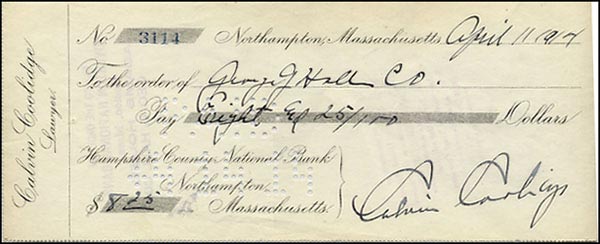 Calvin Coolidge
Lawyer.
No 3114 Northampton, Massachusetts. April 11 1917
To the order of George J Hall Co.
Pay Eight & 25/100 Dollars
Hampshire County National Bank
Northampton,
$ 8.25 Massachusetts.
Calvin Coolidge